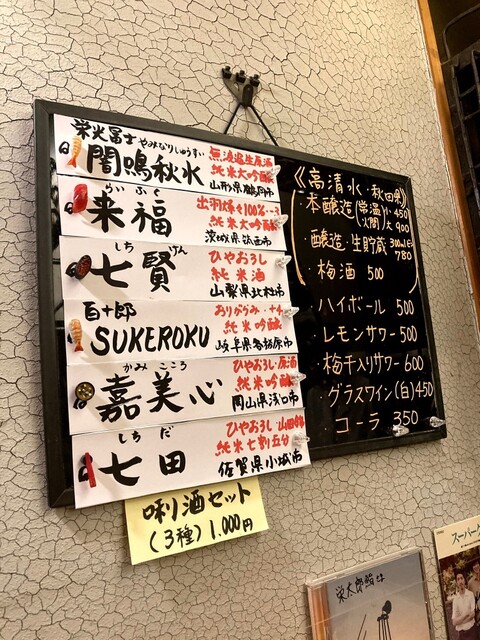 栄光冨士 やみなりしゅうすい
闇鳴秋水
無濾過生原酒
純米大吟醸
山形県鶴岡市
らいふく
来福
出羽燦々100% -3
純米大吟醸
茨城県筑西市
しちけん
七賢
ひやおろし
純米酒
山梨県北杜市
百十郎
SUKEROKU
ありがうみ・+4
純米吟醸
岐阜県各務原市
かみこころ
嘉美心
ひやおろし・原酒
純米吟醸
岡山県浅口市
しちだ
七田
ひやおろし・山田錦
純米七割五分
佐賀県小城市
唎酒セット
(3種) 1,000円
《高清水・秋田県》
・本醸造(常温)小 450
(火燗)大 900
・醸造・生貯蔵 300ml
780
・梅酒 500
・ハイボール 500
・レモンサワー 500
・梅干入りサワー 600
・グラスワイン(白) 450
・コーラ 350
栄太郎鮨さま
スーパー